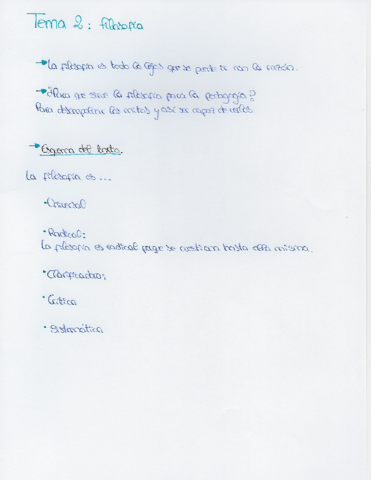 Tema 2: filosofía
→ La filosofía es todo lo lejos que se puede ir con la razón.
→ ¿Para que sirve la filosofía para la pedagogía?
Para desempolvar los mitos y así ser capaz de verlos.
→ Esquema del texto.
La filosofía es ...
· Universal
· Radical:
La filosofía es radical porque se cuestiona hasta ella misma.
· Clarificadora:
· Crítica
· Sistemática